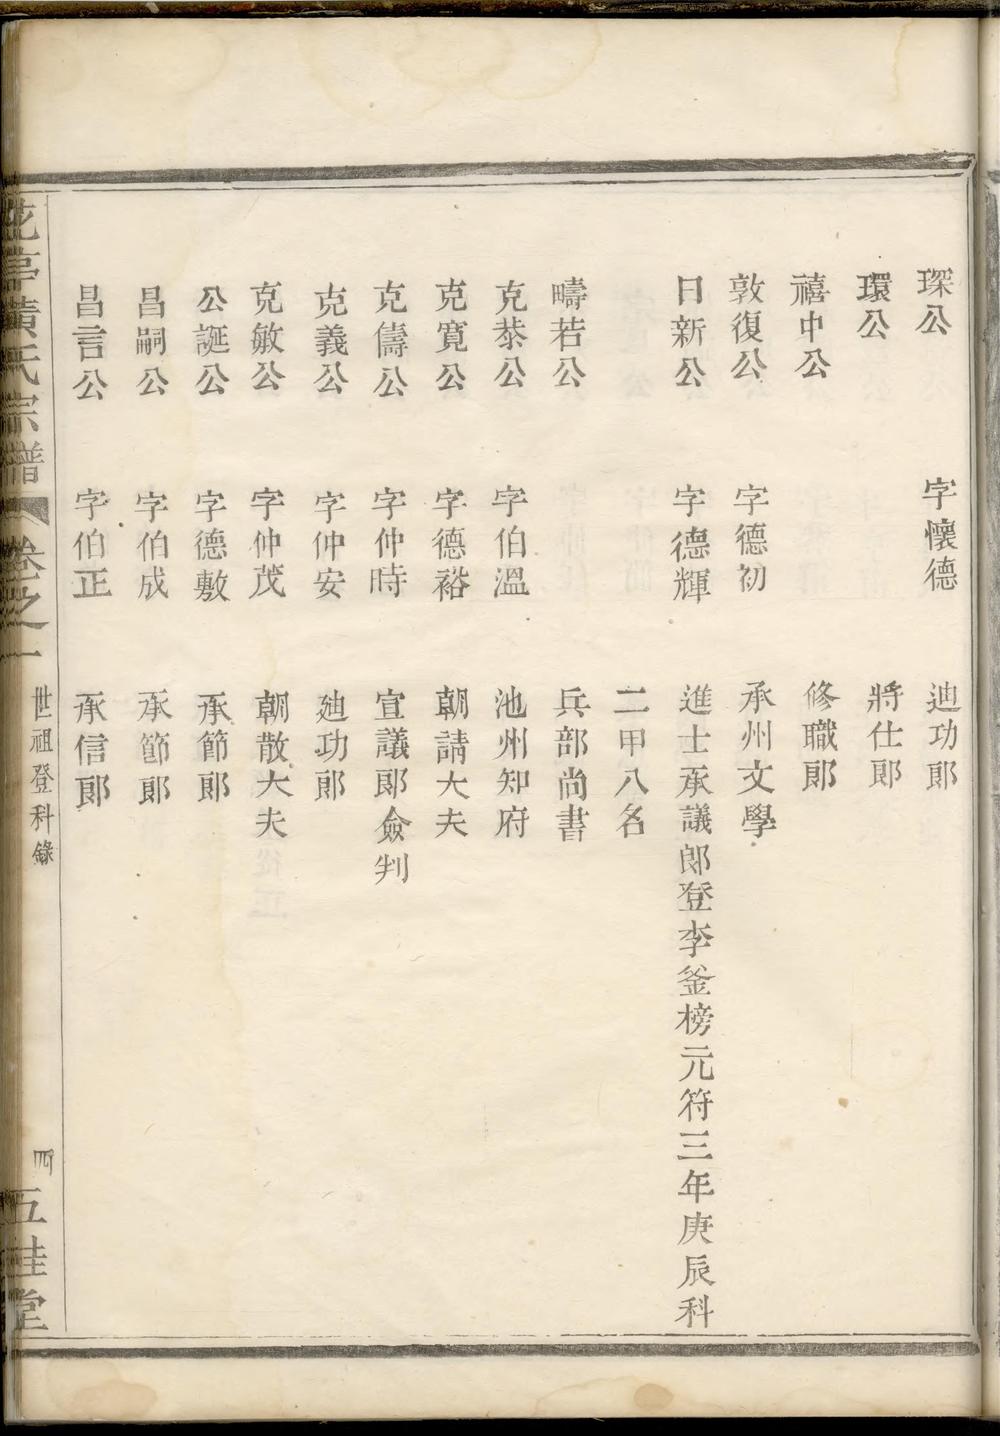 琛公 字懷德 迪功郎
環公 將仕郎
禧中公 修職郎
敦復公 字德初 承州文學
日新公 字德輝 進士承議郎登李釜榜元符三年庚辰科
二甲八名
疇若公 兵部尚書
克恭公 字伯溫 池州知府
克寬公 字德裕 朝請大夫
克儔公 字仲時 宣議郎僉判
克義公 字仲安 廸功郎
克敏公 字仲茂 朝散大夫
公誕公 字德敷 承節郎
昌嗣公 字伯成 承節郎
昌言公 字伯正 承信郎
黃氏宗譜 卷之一 世祖登科錄 四 五桂堂